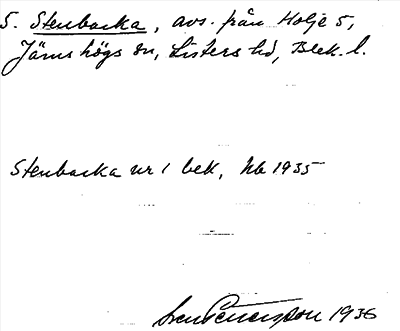 5. Stenbacka, avs. från Holje 5,
Jämshögs sn, Listers hd, Blek. l.
Stenbacka nr 1 bek, Jb 1935
Sven Benson 1936